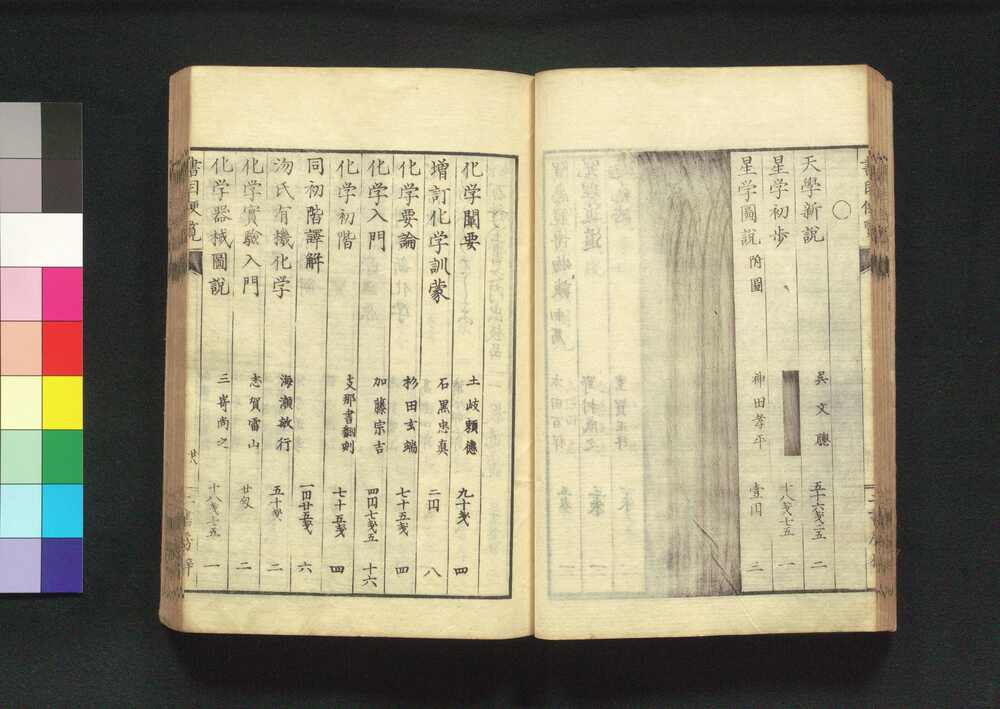 〇
天學新説 吳文聰 五十六戔二五 二
星学初歩 十八戔七五 一
星学圖説 附圖 神田孝平 壹円 三
化学闡要 土岐頼德 九十戔 四
増訂化学訓蒙 石黒忠真 二円 八
化学要論 杉田玄端 七十五戔 四
化学入門 加藤宗吉 四円七戔五 十六
化学初階 支那書翻刻 七十五戔 四
同初階譯解 一円廿五戔 六
湯氏有機化学 海瀬敏行 五十戔 二
化学實驗入門 志賀雷山 廿匁 二
化学器械圖説 三㟢尚之 十八戔七五 一
書目便覧